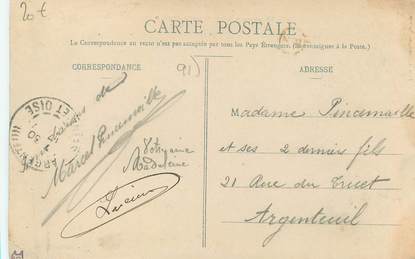 20 €
CARTE POSTALE
La Correspondance au recto n'est pas acceptée par tous les Pays Étrangers. (Se renseigner à la Poste.)
CORRESPONDANCE
91)
ADRESSE
de
Marcel Pincemaille
Madeleine
Lucien
ET OISE
Madame Pincemaille
et ses 2 derniers fils
21 Rue du Truet
Argenteuil